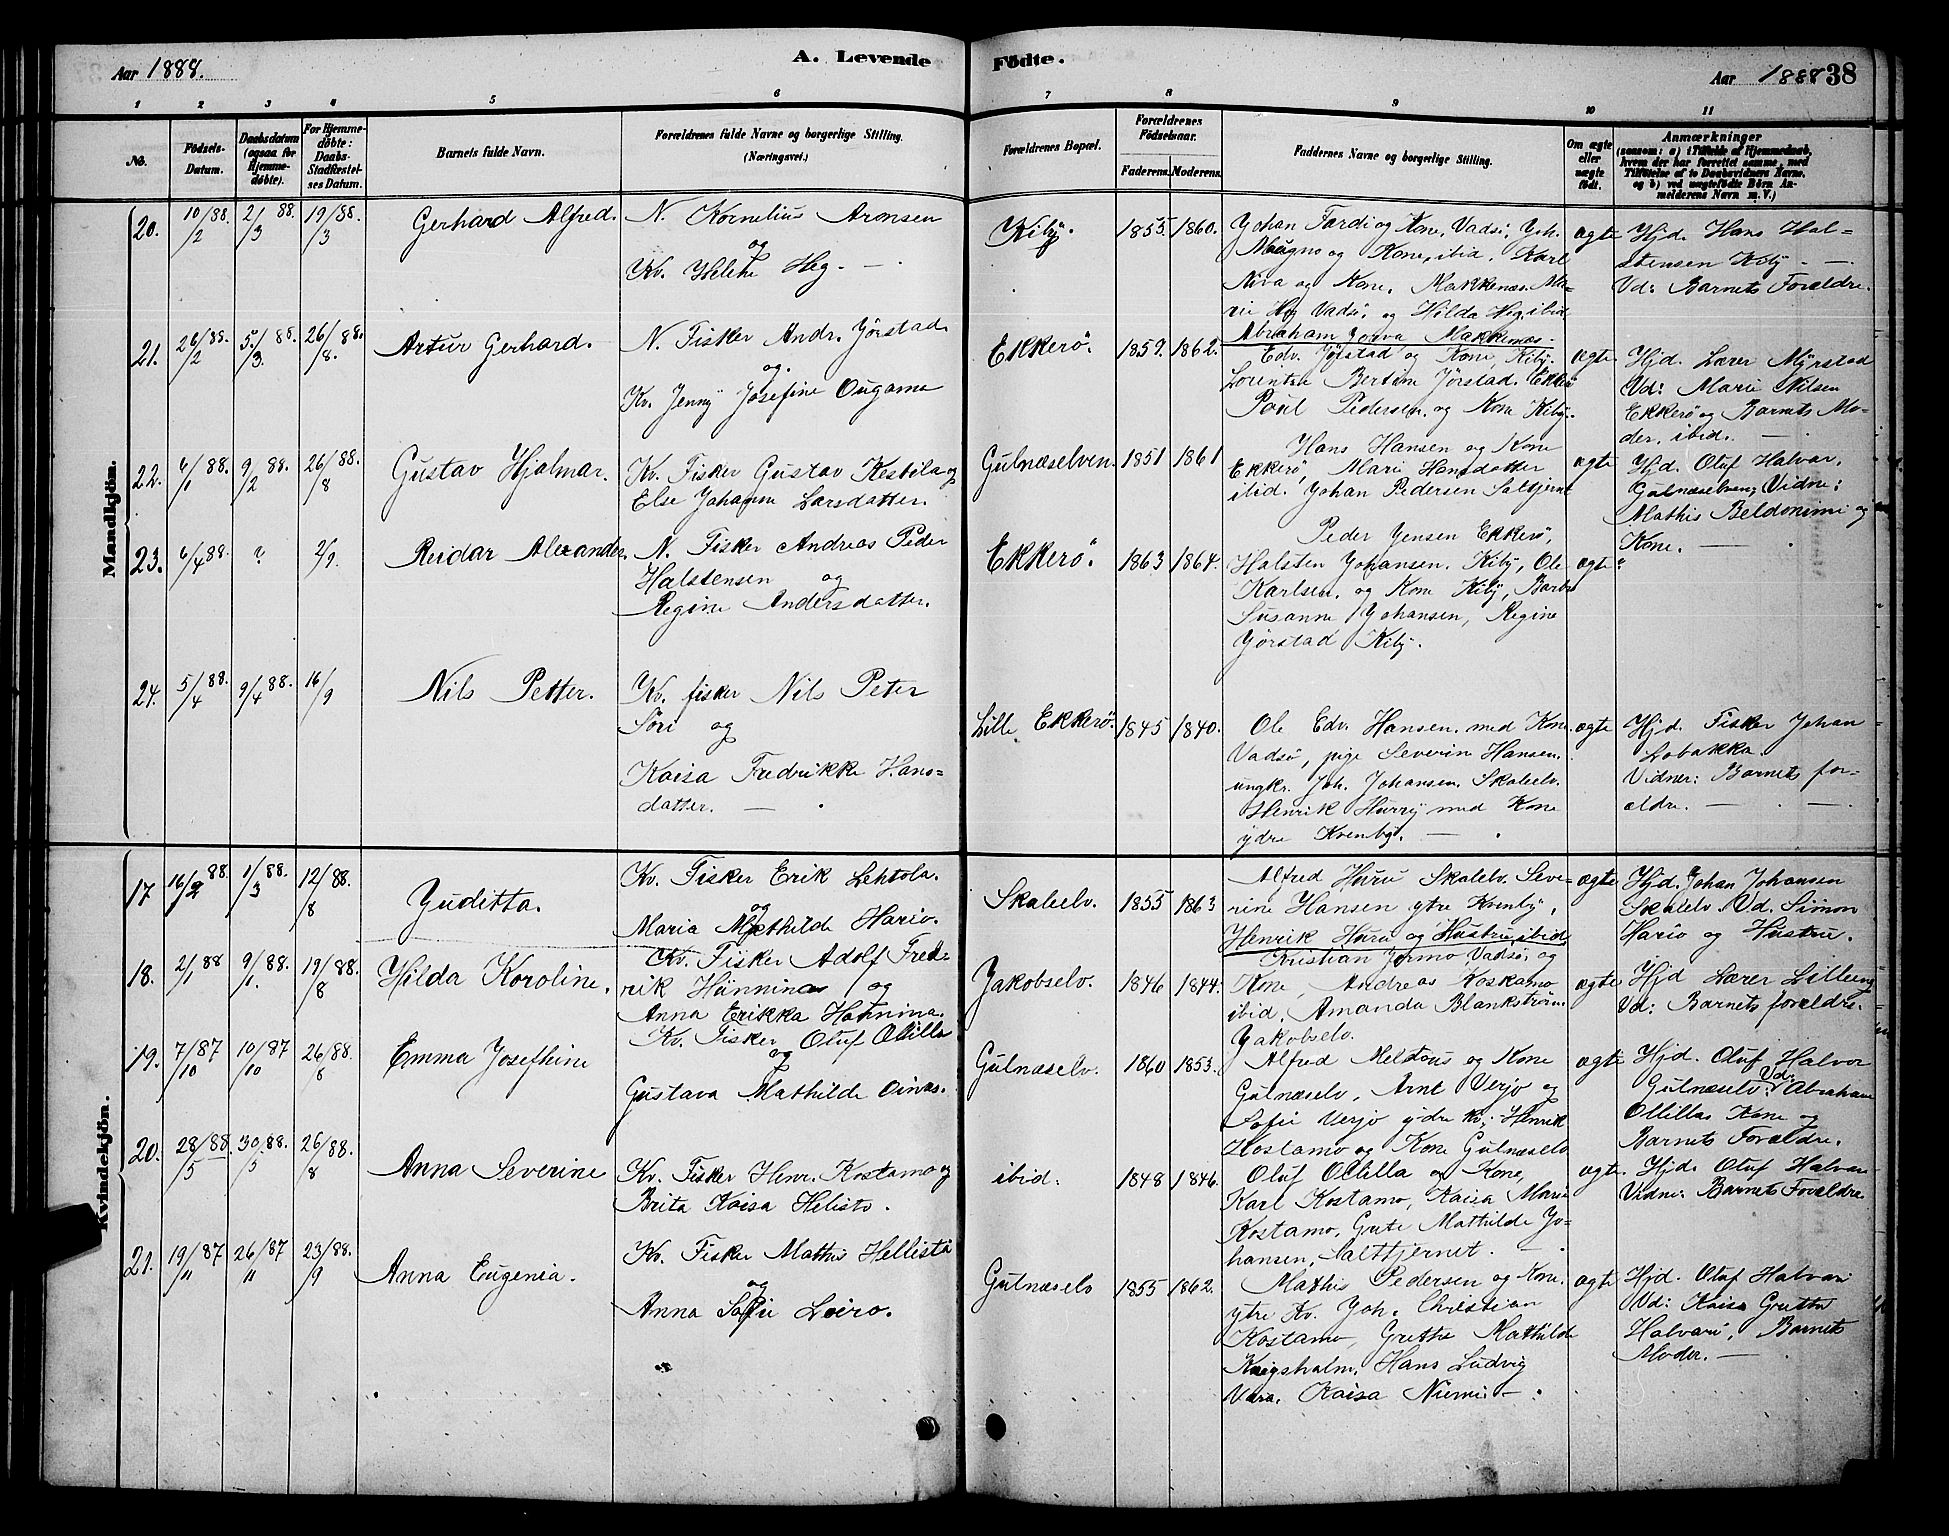 Aar 1888.
A. Levende
Fødte.
Aar 1888
38
1 2 3 4 5 6 7 8 9 10 11
No.
Fødsels-
Datum.
Daabsdatum
(ogsaa for
Hjemme-
døbte).
For Hjemme-
døbte:
Daabs-
Stadfæstel-
ses Datum.
Barnets fulde Navn.
Forældrenes fulde Navne og borgerlige Stilling.
(Næringsvei.)
Forældrenes Bopæl.
Forældrenes
Fødselsaar.
Faderens. Moderens.
Faddernes Navne og borgerlige Stilling.
Om ægte
eller
uægte
født.
Anmærkninger
(saasom: a) i Tilfælde af Hjemmedaab,
hvem der har forrettet samme, med
Tilføielse af to Daabsvidners Navne,
og b) ved uægtefødte Børn An-
melderens Navn m. V.)
Mandkjön.
20. 10/2 88. 2/3 88. 19/3 88. Gerhard Alfred.
N. Kornelius Aronsen
og
Kv. Helene Heg. —
Kiby. 1855. 1860.
Johan Tardi og Kone, Vadsö, Joh.
Maugno og Kone, ibid. Karl
Niva og Kone, Makkenæs. Ma-
rie Heg Vadsö, og Hilda Heg, ibid
Abraham Jorva Makkenæs.
ægte
Hjd. Hans Hal-
stensen Kiby —
Vd: Barnets Forældre.
21. 26/2 88. 5/3 88. 26/8 88. Artur Gerhard.
N. Fisker Andr. Jörstad
og
Kv. Jenny Josefine Ongamo
Ekkerö. 1859. 1862.
Edv. Jörstad og Kone, Kiby.
Lorentse Bertine Jörstad. Ekkerö
Poul Pedersen og Kone Kiby.
ægte
Hjd. Lærer Myrstad
Vd: Marie Nilsen
Ekkerö og Barnets Mo-
der. ibid. —
22. 6/1 88. 9/2 88. 26/8 88. Gustav Hjalmar.
Kv. Fisker Gustav Kesbila og
Else Johanne Larsdatter.
Gulnæselven. 1851 1861
Hans Hansen og Kone
Ekkerö, Marie Hansdatter
ibid. Johan Pedersen Saltjernet
ægte
Hjd. Oluf Halvar.
Gulnæselven, Vidne:
Mathis Beldonimi og
Kone. —
23. 6/4 88. ? 2/9. Reidar Alexander.
N. Fisker Andreas Peder
Halstensen og
Regine Andersdatter.
Ekkerö. 1863 1864.
Peder Jensen Ekkerö,
Halsten Johansen. Kiby, Ole
Karlsen, og Kone Kiby, Barbr
Susanne Johansen, Regine
Jörstad Kiby.
ægte
24. 5/4 88. 9/4 88. 16/9 Nils Petter.
Kv. fisker Nils Peter
Söri og
Kaisa Fredrikke Hans-
datter. —
Lille Ekkerö. 1845 1840.
Ole Edv. Hansen, med Kone.
Vadsö, pige Severin Hansen.
ungkr. Joh. Johansen, Skalelv.
Henrik Hurry med Kone
ydre Kvenby. —
ægte
Hjd. Fisker Johan
Lobakka.
Vidner: Barnets for-
ældre. —
Kvindekjön.
17 16/2 88. 1/3 88. 12/8 88. Juditta.
Kv. Fisker Erik Lehtola.
og
Maria Mathilde Hario.
Skalelv. 1855 1863
Alfred Huru Skalelv. Seve-
rine Hansen ytre Kvenby,
Henrik Huru og Hustru ibid
ægte
Hjd. Johan Johansen
Skalelv. Vd. Simon
Hario og Hustru.
18. 2/1 88 9/1 88. 19/8 88. Hilda Karoline.
Kv. Fisker Adolf Fred-
rik Hannina og
Anna Erikka Hannina.
Jakobselv. 1846 1844.
Kristian Jormo Vadsö, og
Kone, Andreas Koskamo
ibid, Amanda Blankström
Jakobselv.
ægte
Hjd Lærer Lilleeng
Vd: Barnets forældre.
19. 7/10 87 10/10 87 26/8 88. Emma Josefhine
Kv. Fisker Oluf Ollilla
og
Gustava Mathilde Oinas.
Gulnæselv. 1860 1853.
Alfred Meltous og Kone
Gulnæselv, Arne Verjo og
Sofie Verjo ydre Kv; Henrik
Kostamo og Kone Gulnæselv
ægte
Hjd. Oluf Halvor
Gulnæselv. Vd: Abraham
Ollillas Kone og
Barnets Forældre.
20. 28/5 88. 30/5 88. 26/8 88. Anna Severine
Kv. Fisker Henr. Kostamo og
Brita Kaisa Helisto.
ibid. 1848 1846.
Oluf Ollilla og Kone,
Karl Kostamo, Kaisa Marie
Kostamo, Grete Mathilde Jo-
hansen, Salttjernet. —
ægte.
Hjd. Oluf Halvari
Vidne: Barnets Forældre
21. 19/11 87 26/11 87 23/9 88. Anna Eugenia.
Kv. Fisker Mathis Hellistä
og
Anna Sofie Leiro.
Gulnæselv 1855 1862.
Mathis Pedersen og Kone.
ytre Kv. Joh. Christian
Kostamo, Grethe Mathilde
Keigsholm, Hans Ludvig
Vara, Kaisa Niemi —
ægte
Hjd. Oluf Halvari
Vd: Kaisa Grethe
Halvari, Barnets
Moder. —